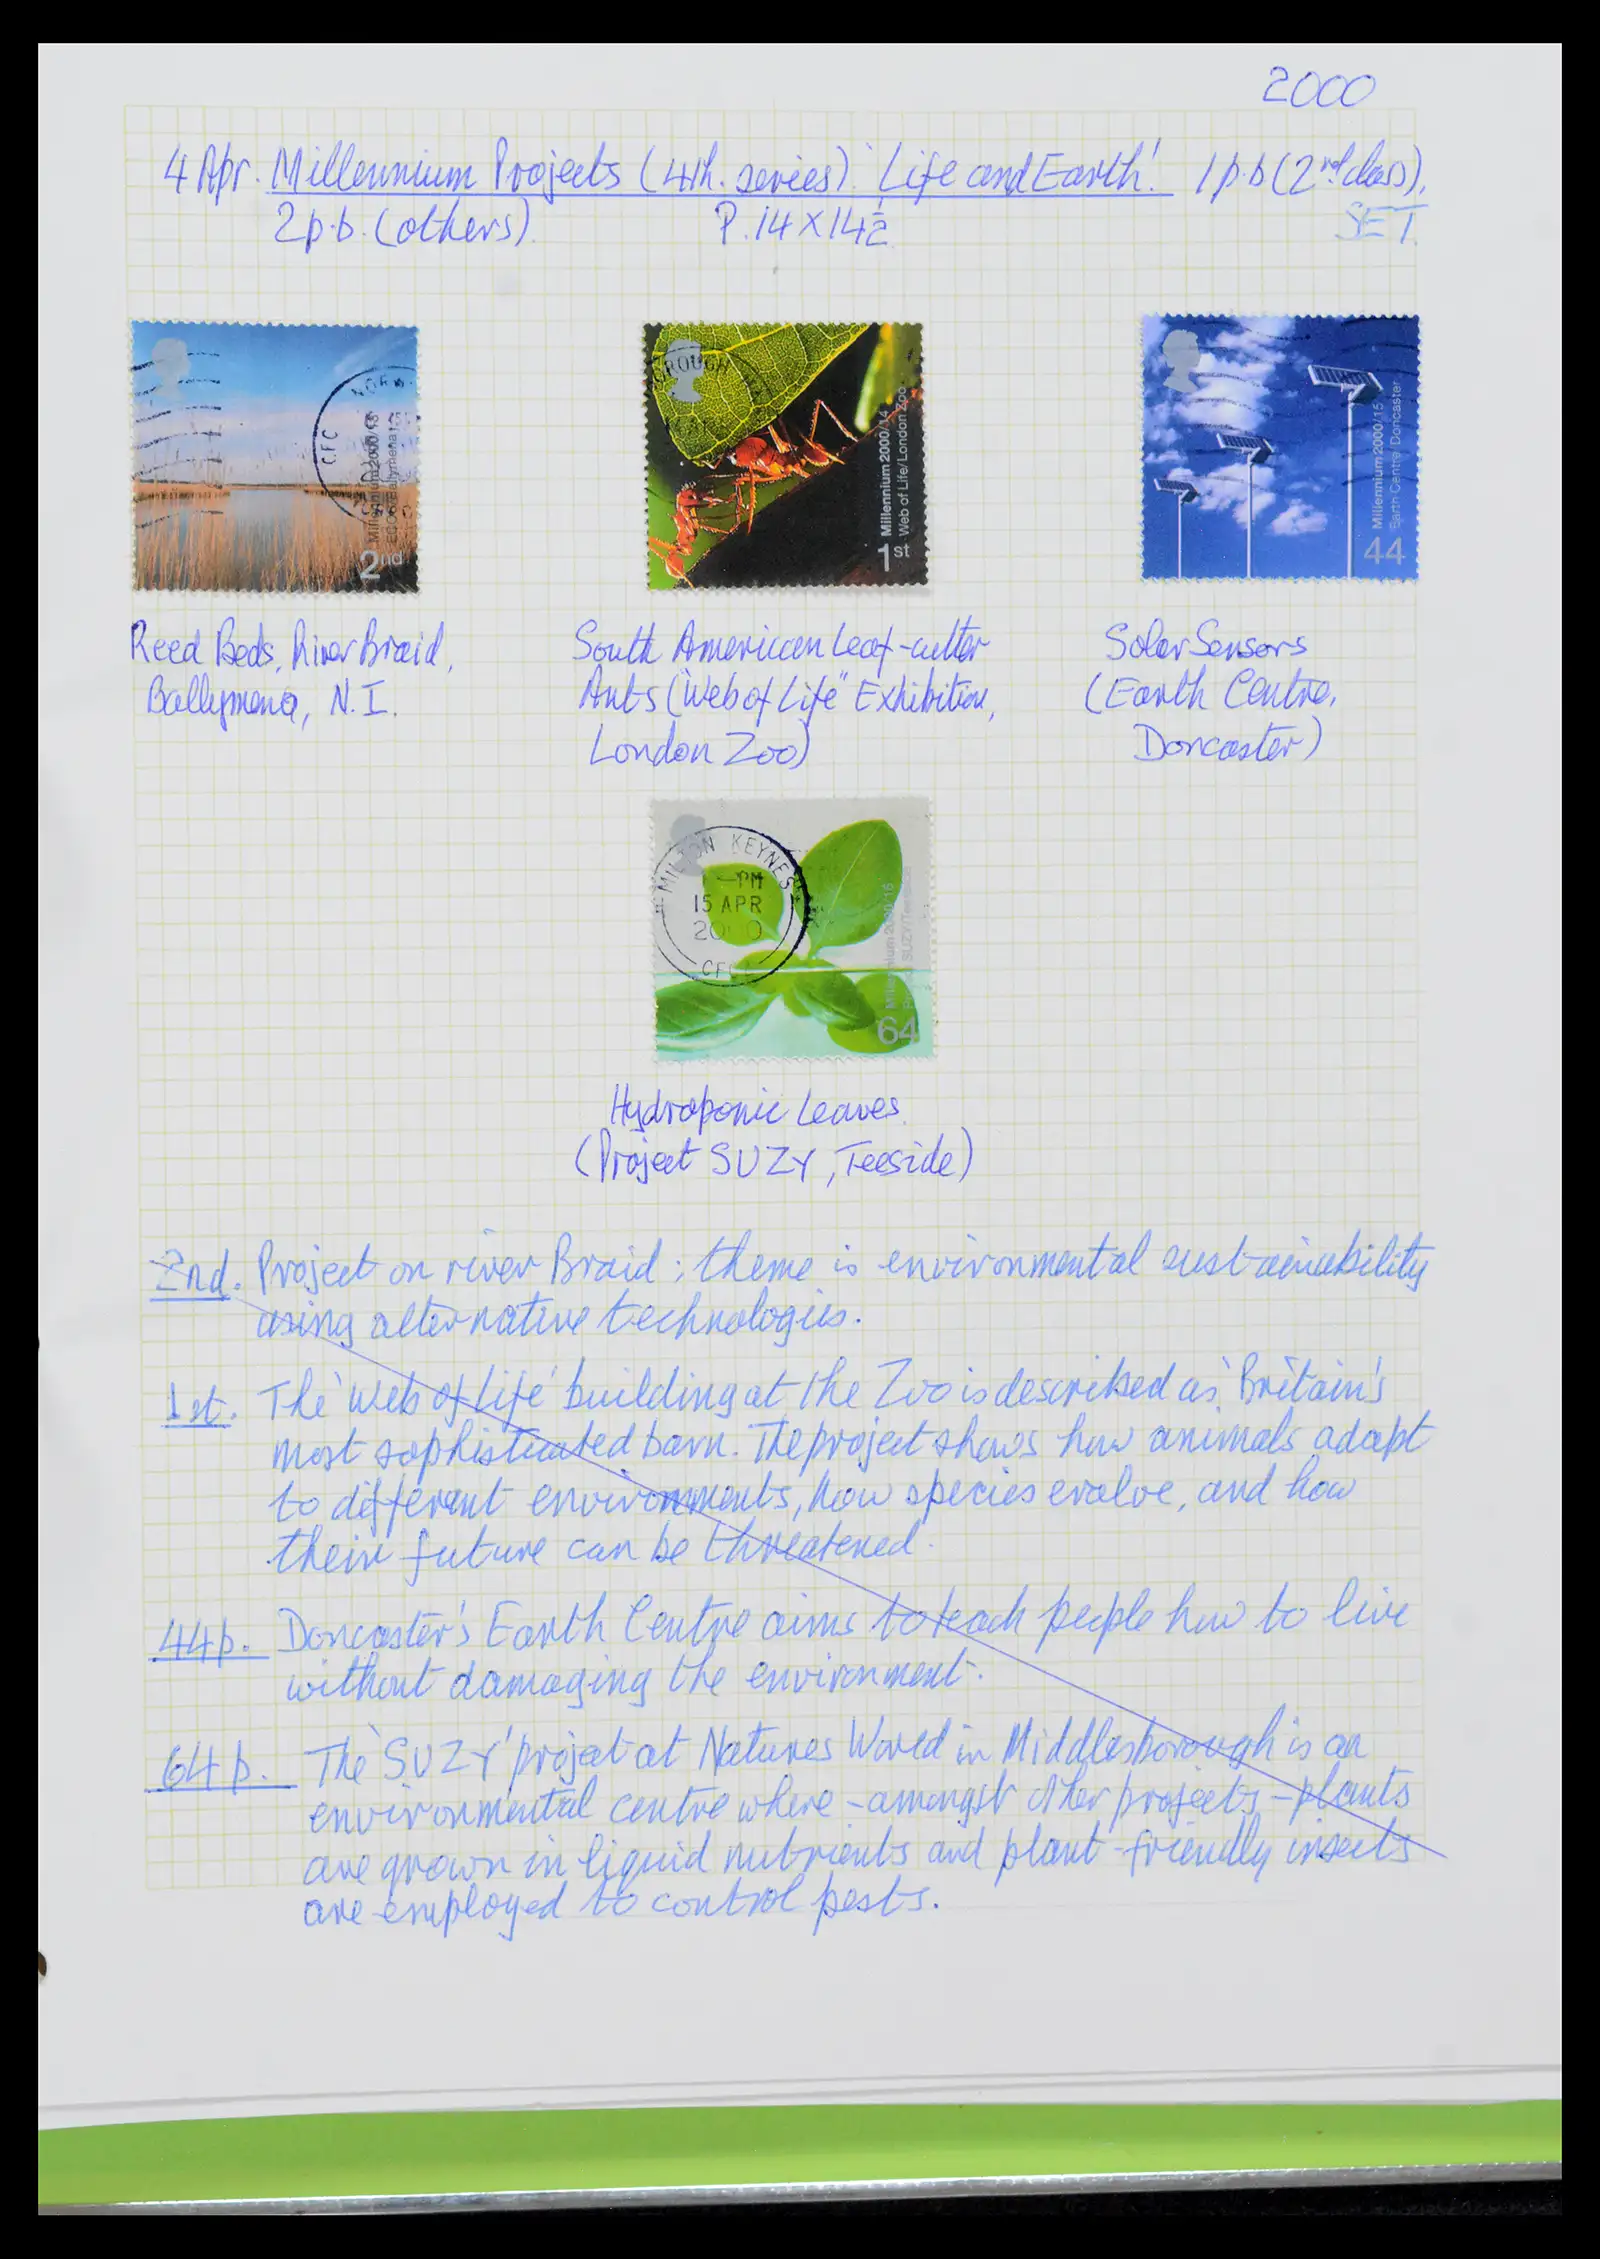 2000
4 Apr. Millennium Projects (4th. series). 'Life and Earth'. 1p.b (2nd class),
2p.b. (others). P. 14 X 14½
SET.
CFC NORW
Millennium 2000/13
ECOS/Ballymena
2nd
OROUGH
Millennium 2000/14
Web of Life/London Zoo
1st
Millennium 2000/15
Earth Centre/Doncaster
44
Reed Beds, River Braid,
Ballymena, N.I.
South American Leaf-cutter
Ants ("Web of Life" Exhibition,
London Zoo)
Solar Sensors
(Earth Centre,
Doncaster)
MILTON KEYNES
PM
15 APR
2000
CFC
Millennium 2000/16
64
Hydroponic Leaves
(Project SUZY, Teeside)
2nd. Project on river Braid; theme is environmental sustainability
using alternative technologies.
1st. The 'Web of Life' building at the Zoo is described as 'Britain's
most sophisticated barn. The project shows how animals adapt
to different environments, how species evolve, and how
their future can be threatened.
44p. Doncaster's Earth Centre aims to teach people how to live
without damaging the environment.
64p. The 'SUZY' project at Natures World in Middlesborough is an
environmental centre where - amongst other projects - plants
are grown in liquid nutrients and plant-friendly insects
are employed to control pests.